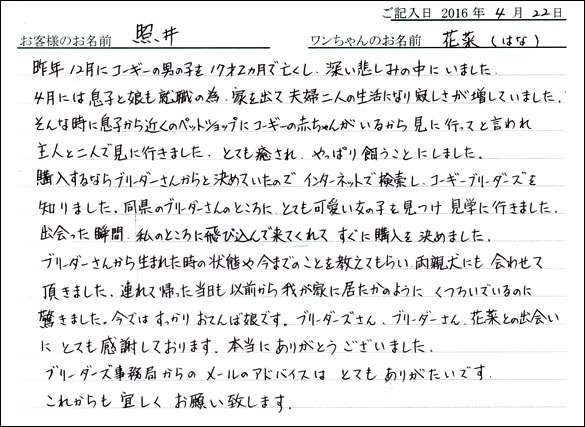 ご記入日 2016 年 4 月 22 日
お客様のお名前 照井 ワンちゃんのお名前 花菜 (はな)
昨年12月にコーギーの男の子を17才2カ月で亡くし、深い悲しみの中にいました。
4月には息子と娘も就職の為、家を出て夫婦二人の生活になり寂しさが増していました。
そんな時に息子から近くのペットショップにコーギーの赤ちゃんがいるから見に行ってと言われ
主人と二人で見に行きました。とても癒され、やっぱり飼うことにしました。
購入するならブリーダーさんからと決めていたので インターネットで検索し、コーギーブリーダーズを
知りました。同県のブリーダーさんのところに、とても可愛い女の子を見つけ 見学に行きました。
出会った瞬間、私のところに飛び込んで来てくれて すぐに購入を決めました。
ブリーダーさんから生まれた時の状態や今までのことを教えてもらい、両親犬にも会わせて
頂きました。連れて帰った当日も以前から我が家に居たかのように くつろいでいるのに
驚きました。今ではすっかりおてんば娘です。ブリーダーズさん、ブリーダーさん、花菜との出会い
にとても感謝しております。本当にありがとうございました。
ブリーダーズ事務局からの メールのアドバイスは とてもありがたいです。
これからも宜しくお願い致します。